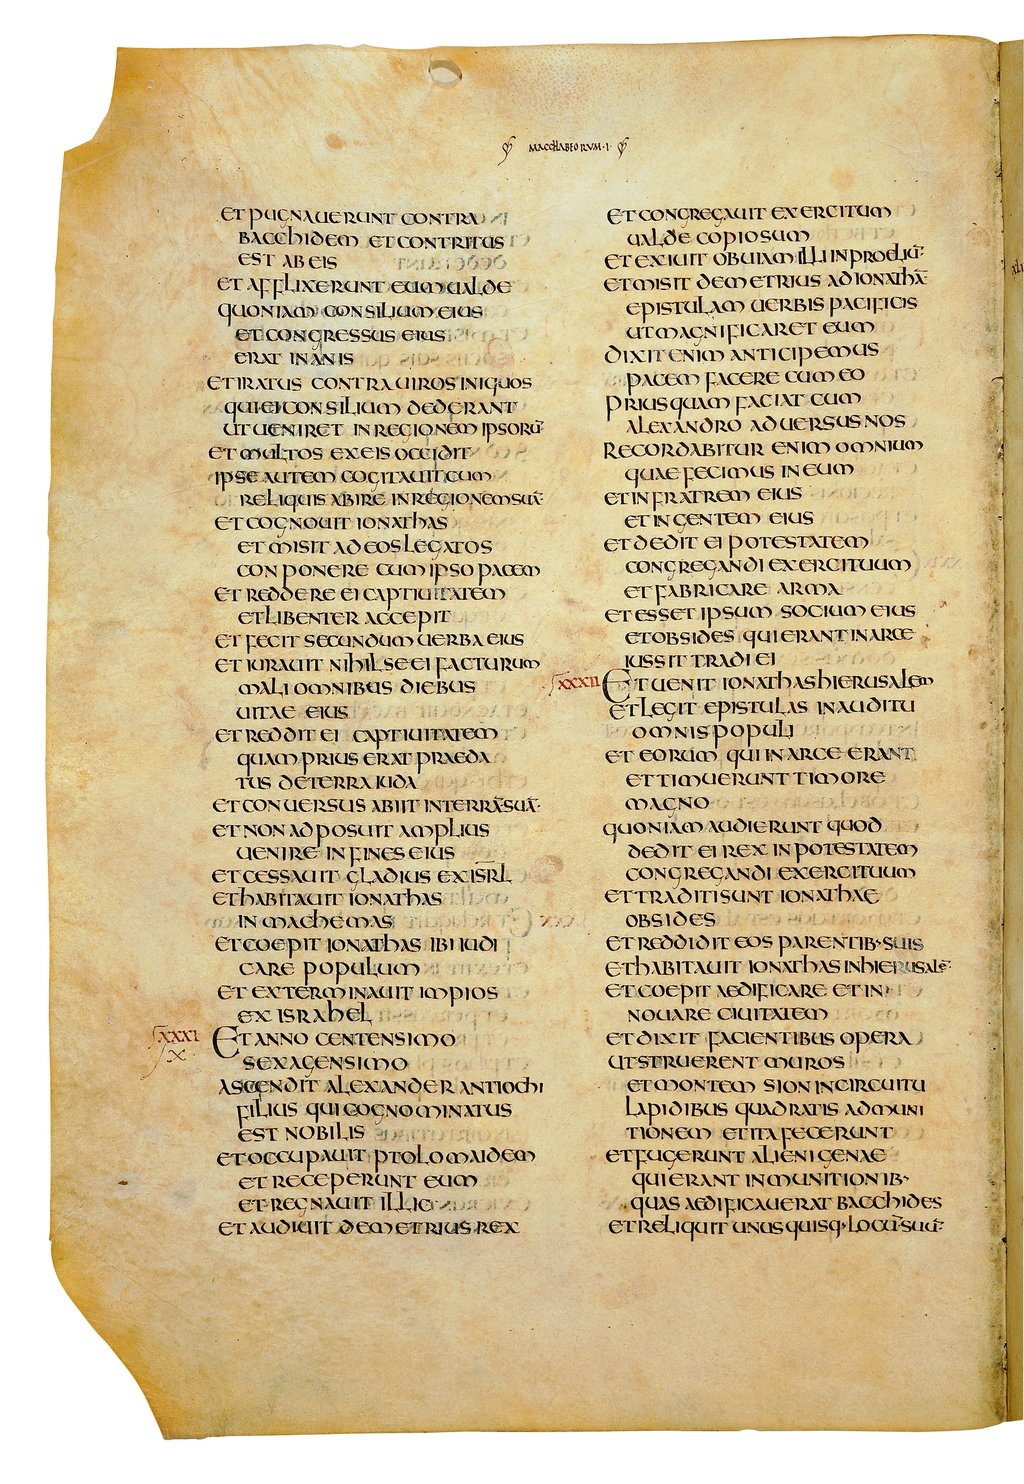 MACCHABEORUM·I·
ET PUGNAUERUNT CONTRA
BACCHIDEM ET CONTRITUS
EST AB EIS
ET AFFLIXERUNT EUM UALDE
QUONIAM CONSILIUM EIUS
ET CONGRESSUS EIUS
ERAT INANIS
ET IRATUS CONTRA UIROS INIQUOS
QUI EI CONSILIUM DEDERANT
UT UENIRET IN REGIONEM IPSORŪ·
ET MULTOS EX EIS OCCIDIT
IPSE AUTEM COGITAUIT CUM
RELIQUIS ABIRE IN REGIONEM SUĀ·
ET COGNOUIT IONATHAS
ET MISIT AD EOS LEGATOS
CONPONERE CUM IPSO PACEM
ET REDDERE EI CAPTIUITATEM
ET LIBENTER ACCEPIT
ET FECIT SECUNDUM UERBA EIUS
ET IURAUIT NIHIL SE EI FACTURUM
MALI OMNIBUS DIEBUS
UITAE EIUS
ET REDDIT EI CAPTIUITATEM
QUAM PRIUS ERAT PRAEDA
TUS DE TERRA IUDA
ET CONUERSUS ABIIT IN TERRĀ SUĀ·
ET NON ADPOSUIT AMPLIUS
UENIRE IN FINES EIUS
ET CESSAUIT GLADIUS EX ISRL
ET HABITAUIT IONATHAS
IN MACHEMAS
ET COEPIT IONATHAS IBI IUDI
CARE POPULUM
ET EXTERMINAUIT IMPIOS
EX ISRAHEL
XXXI
X
ET ANNO CENTENSIMO
SEXAGENSIMO
ASCENDIT ALEXANDER ANTIOCHI
FILIUS QUI COGNOMINATUS
EST NOBILIS
ET OCCUPAUIT PTOLOMAIDEM
ET RECEPERUNT EUM
ET REGNAUIT ILLIC
ET AUDIUIT DEMETRIUS REX
ET CONGREGAUIT EXERCITUM
UALDE COPIOSUM
ET EXIUIT OBUIAM ILLI IN PROELIŪ·
ET MISIT DEMETRIUS AD IONATHĀ
EPISTULAM UERBIS PACIFICIS
UT MAGNIFICARET EUM
DIXIT ENIM ANTICIPEMUS
PACEM FACERE CUM EO
PRIUSQUAM FACIAT CUM
ALEXANDRO ADUERSUS NOS
RECORDABITUR ENIM OMNIUM
QUAE FECIMUS IN EUM
ET IN FRATREM EIUS
ET IN GENTEM EIUS
ET DEDIT EI POTESTATEM
CONGREGANDI EXERCITUUM
ET FABRICARE ARMA
ET ESSET IPSUM SOCIUM EIUS
ET OBSIDES QUI ERANT IN ARCE
IUSSIT TRADI EI
XXXII
ET UENIT IONATHAS HIERUSALEM
ET LEGIT EPISTULAS IN AUDITU
OMNIS POPULI
ET EORUM QUI IN ARCE ERANT
ET TIMUERUNT TIMORE
MAGNO
QUONIAM AUDIERUNT QUOD
DEDIT EI REX IN POTESTATEM
CONGREGANDI EXERCITUUM
ET TRADITI SUNT IONATHAE
OBSIDES
ET REDDIDIT EOS PARENTIB· SUIS
ET HABITAUIT IONATHAS IN HIERUSALĒ·
ET COEPIT AEDIFICARE ET IN
NOUARE CIUITATEM
ET DIXIT FACIENTIBUS OPERA
UT STRUERENT MUROS
ET MONTEM SION IN CIRCUITU
LAPIDIBUS QUADRATIS AD MUNI
TIONEM ET ITA FECERUNT
ET FUGERUNT ALIENIGENAE
QUI ERANT IN MUNITIONIB·
QUAS AEDIFICAUERAT BACCHIDES
ET RELIQUIT UNUSQUISQ· LOCŪ SUŪ·